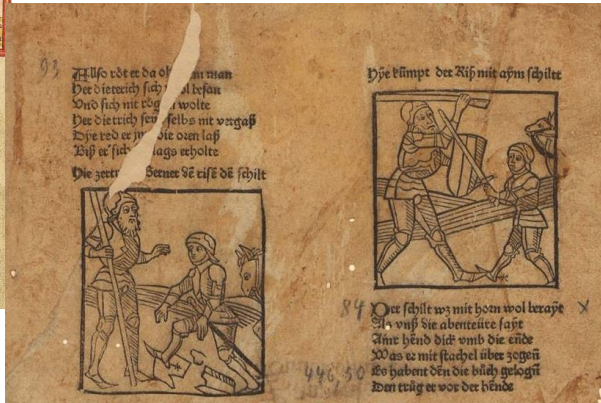 93
Allso rdt er da man
Her dieterich sich wol besan
Vnd sich nit rögen wolte
Her dietrich selbs nit vergaß
Dye red er die oren laß
Biß er sich erholte
Hie Berner dē risē dē schilt
Hye kümpt der Riß mit aym schilt
84 Der schilt wz mit horn wol berayt x
Als vnß die abenteüre sayt
Ainr hēnd dick vmb die ende
Was er mit stachel über zogeñ
Es habent dēn die bůch gelogñ
Den trůg er vor der hēnde
446,50